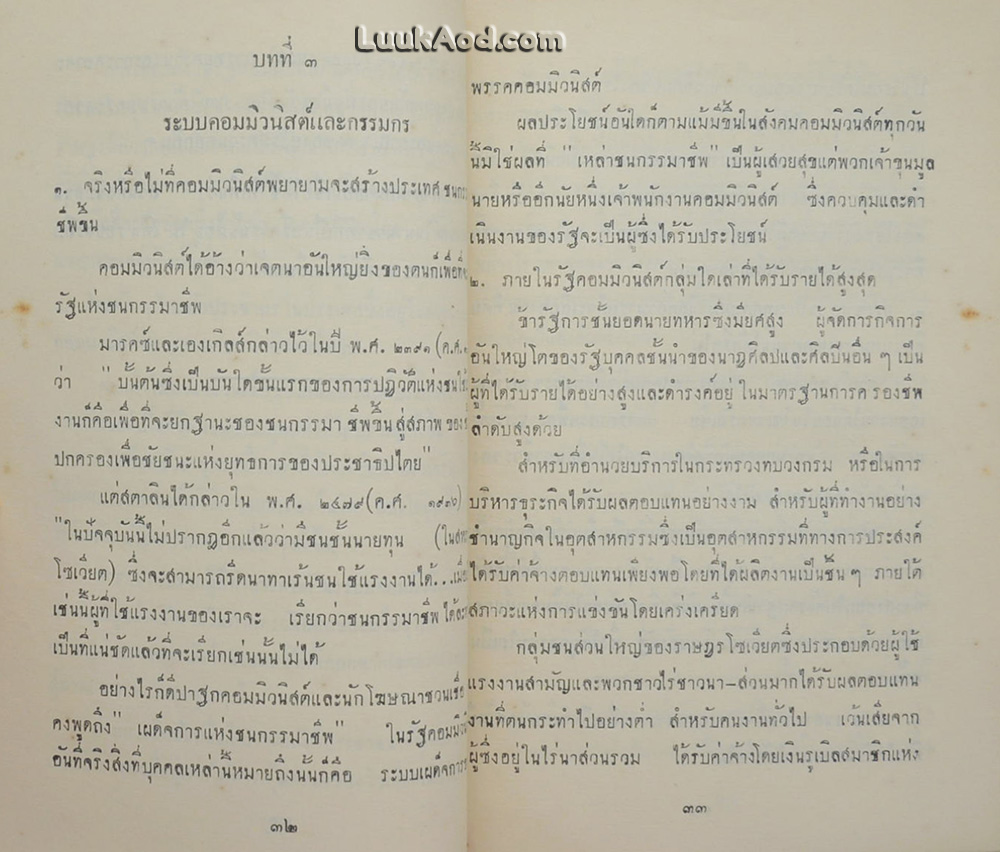 LuukAod.com
บทที่ ๓
ระบบคอมมิวนิสต์และกรรมกร
๑. จริงหรือไม่ที่คอมมิวนิสต์พยายามจะสร้างประเทศ ชนกร
ชีพขึ้น
คอมมิวนิสต์ได้อ้างว่าเจตนาอันใหญ่ยิ่งของตนก็เพื่อที่
รัฐแห่งชนกรรมาชีพ
มารคซ์และเองเกิลส์กล่าวไว้ในปี พ.ศ. ๒๓๙๑ (ค.ศ.
ว่า " บั้นต้นซึ่งเป็นบันใดขั้นแรกของการปฏิวัติแห่งชนใช้
งานก็คือเพื่อที่จะยกฐานะของชนกรรมา ชีพขึ้นสู่สภาพ ของ
ปกครองเพื่อชัยชนะแห่งยุทธการของประชาธิปไตย"
แต่สตาลินได้กล่าวใน พ.ศ. ๒๔๗๙(ค.ศ. ๑๙๓๖)
"ในปัจจุบันนี้ไม่ปรากฏอีกแล้วว่ามีชนชั้นนายทุน (ในสห
โซเวียต) ซึ่งจะสามารถรีดนาทาเร้นชนใช้แรงงานได้...เมื่อ
เช่นนี้ผู้ที่ใช้แรงงานของเราจะ เรียกว่าชนกรรมาชีพได้ละ
เป็นที่แน่ชัดแล้วที่จะเรียกเช่นนั้นไม่ได้
อย่างไรก็ดีปาฐกคอมมิวนิสต์และนักโฆษณาชวนเชื่อ
คงพูดถึง" เผด็จการแห่งชนกรรมาชีพ" ในรัฐคอมมิวนิ
อันที่จริงสิ่งที่บุคคลเหล่านี้หมายถึงนั้นก็คือ ระบบเผด็จการ
๓๒
พรรคคอมมิวนิสต์
ผลประโยชน์อันใดก็ตามแม้มีขึ้นในสังคมคอมมิวนิสต์ทุกวัน
นี้มิใช่ผลที่ "เหล่าชนกรรมาชีพ" เป็นผู้เสวยสุขแต่พวกเจ้าขุนมูล
นายหรืออีกนัยหนึ่งเจ้าพนักงานคอมมิวนิสต์ ซึ่งควบคุมและดำ
เนินงานของรัฐจะเป็นผู้ซึ่งได้รับประโยชน์
๒. ภายในรัฐคอมมิวนิสต์กลุ่มใดเล่าที่ได้รับรายได้สูงสุด
ข้ารัฐการชั้นยอดนายทหารซึ่งมียศสูง ผู้จัดการกิจการ
อันใหญ่โตของรัฐบุคคลชั้นนำของนาฏศิลปและศิลปินอื่น ๆ เป็น
ผู้ที่ได้รับรายได้อย่างสูงและดำรงค์อยู่ ในมาตรฐานการค รองชีพ
ลำดับสูงด้วย
สำหรับที่อำนวยบริการในกระทรวงทบวงกรม หรือในการ
บริหารธุระกิจได้รับผลตอบแทนอย่างงาม สำหรับผู้ที่ทำงานอย่าง
ชำนาญกิจในอุตสาหกรรมซึ่งเป็นอุตสาหกรรมที่ทางการประสงค์
ได้รับค่าจ้างตอบแทนเพียงพอโดยที่ได้ผลิตงานเป็นชิ้น ๆ ภายใต้
สภาวะแห่งการแข่งขันโดยเคร่งเครียด
กลุ่มชนส่วนใหญ่ของราษฎรโซเวียตซึ่งประกอบด้วยผู้ใช้
แรงงานสามัญและพวกชาวไร่ชาวนา-ส่วนมากได้รับผลตอบแทน
งานที่ตนกระทำไปอย่างต่ำ สำหรับคนงานทั่วไป เว้นเสียจาก
ผู้ซึ่งอยู่ในไร่นาส่วนรวม ได้รับค่าจ้างโดยเงินรูเบิลสมาชิกแห่ง
๓๓